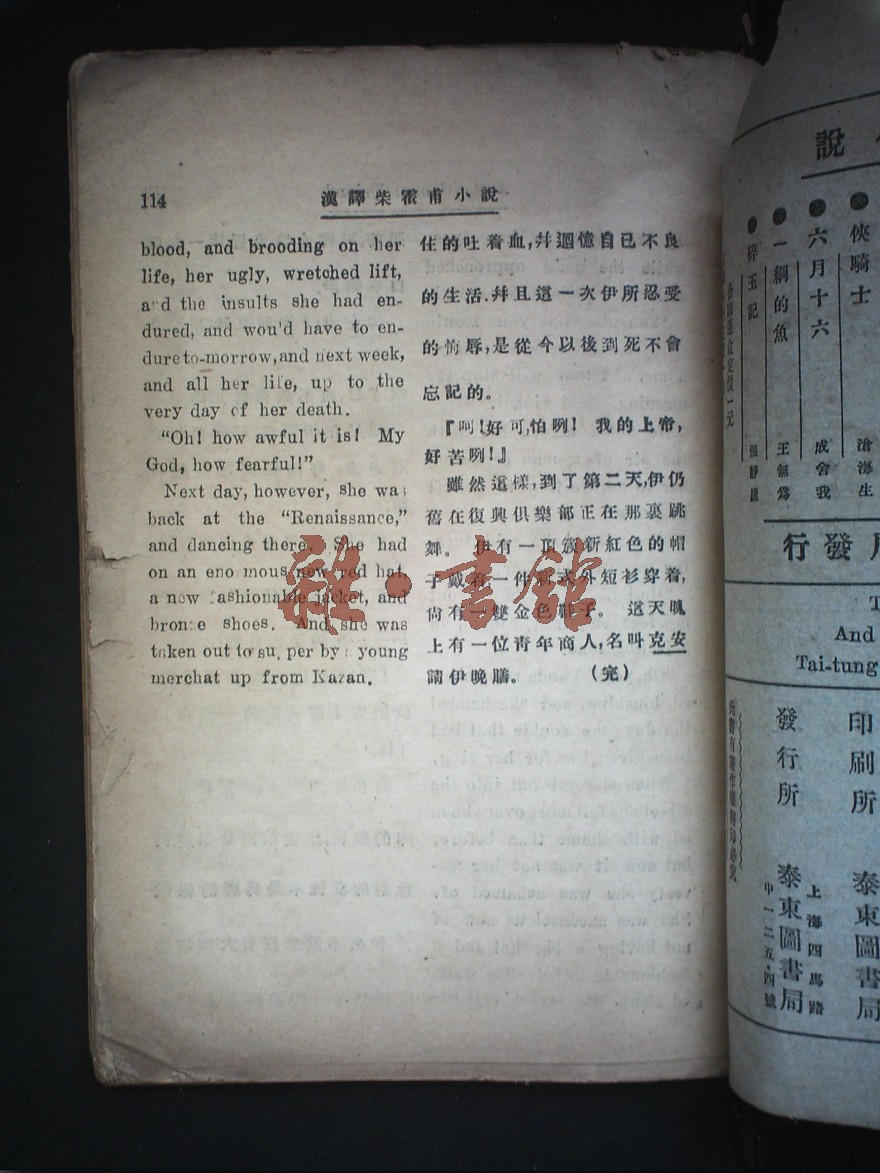 114
漢譯柴霍甫小說
blood, and brooding on her
life, her ugly, wretched lift,
and the insults she had en-
dured, and wou'd have to en-
dure to-morrow, and next week,
and all her life, up to the
very day of her death.
"Oh! how awful it is! My
God, how fearful!"
Next day, however, she was
back at the "Renaissance,"
and dancing there. She had
on an eno mous new red hat,
a new fashionable jacket, and
bronze shoes. And she was
taken out to su per by young
merchat up from Kazan.
住的吐着血,幷迴憶自已不良
的生活.幷且這一次伊所忍受
的悔辱,是從今以後到死不會
忘記的。
『呵!好可,怕咧! 我的上帝,
好苦咧!』
雖然這樣,到了第二天,伊仍
舊在復興俱樂部正在那裏跳
舞。 伊有一頂簇新紅色的帽
子戴着一件新式外短衫穿着,
尙有一雙金色鞋子。 這天晚
上有一位靑年商人,名叫克安
請伊晚膳。 (完)
雜·書館
說
俠騎士 滄海生
●六月十六 成舍我
●一綱的魚 王無爲
●碎玉記 張靜廬
發行
And
Tai-tung
印刷所 泰東圖書局
發行所 泰東圖書局
上海四馬路
中一二五・四號